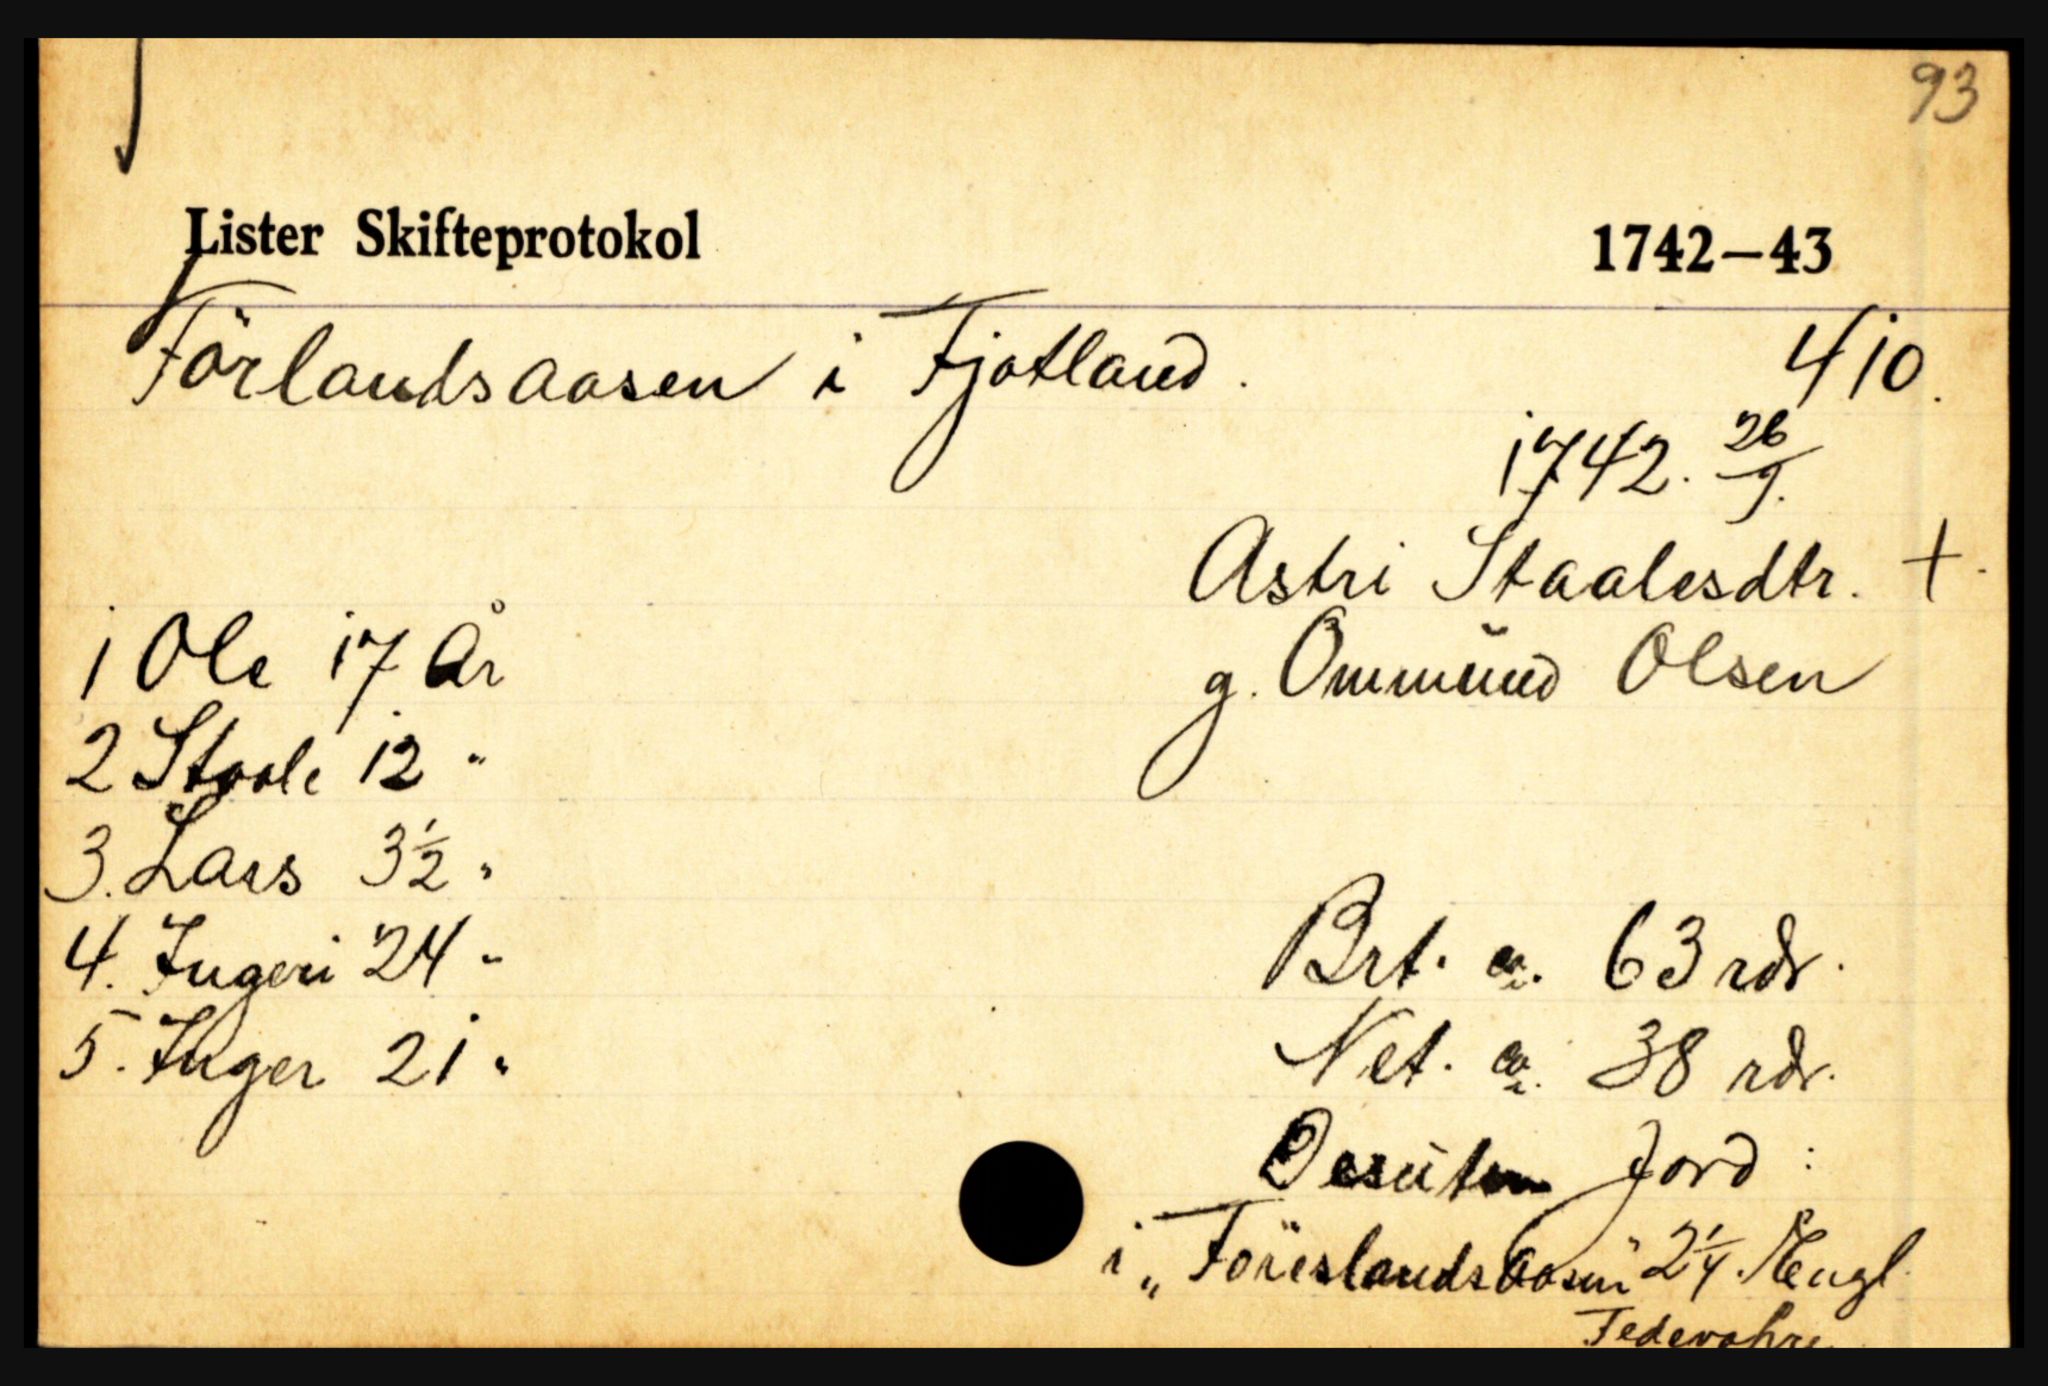 93
Lister Skifteprotokol 1742–43
Förlandsaasen i Fjotland. 410.
1742. 26/9.
Astri Staalesdtr. +.
1 Ole 17 År g. Ommund Olsen
2 Staale 12 "
3. Lars 3½ "
4. Ingeri 24 " Brt. ca. 63 rdr.
5. Inger 21 " Net. ca. 38 rdr.
Desuten Jord:
i „Föreslandsaasen" 2¼ Engl.
Federahre